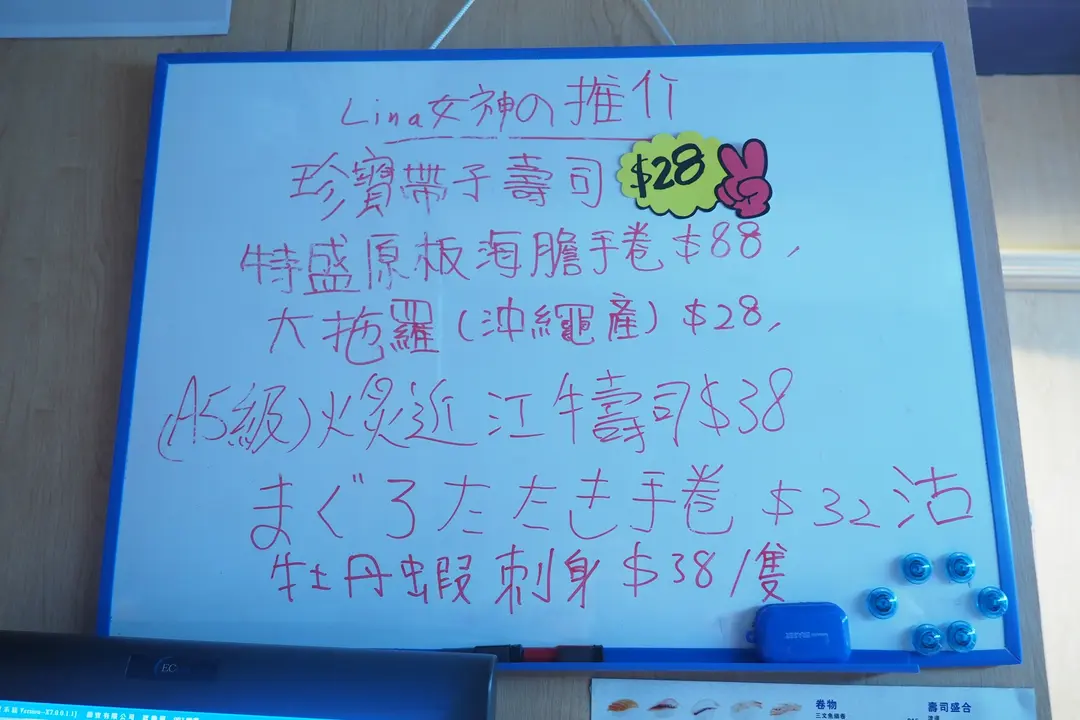 Lina女神の推介
珍寶帶子壽司 $28
特盛原板海膽手卷 $88,
大拖羅(沖繩產) $28,
(A5級)火炙近江牛壽司$38
まぐろたたき手卷 $32 沽
牡丹蝦刺身 $38/隻
EC
卷物
三文魚細卷
壽司盛合